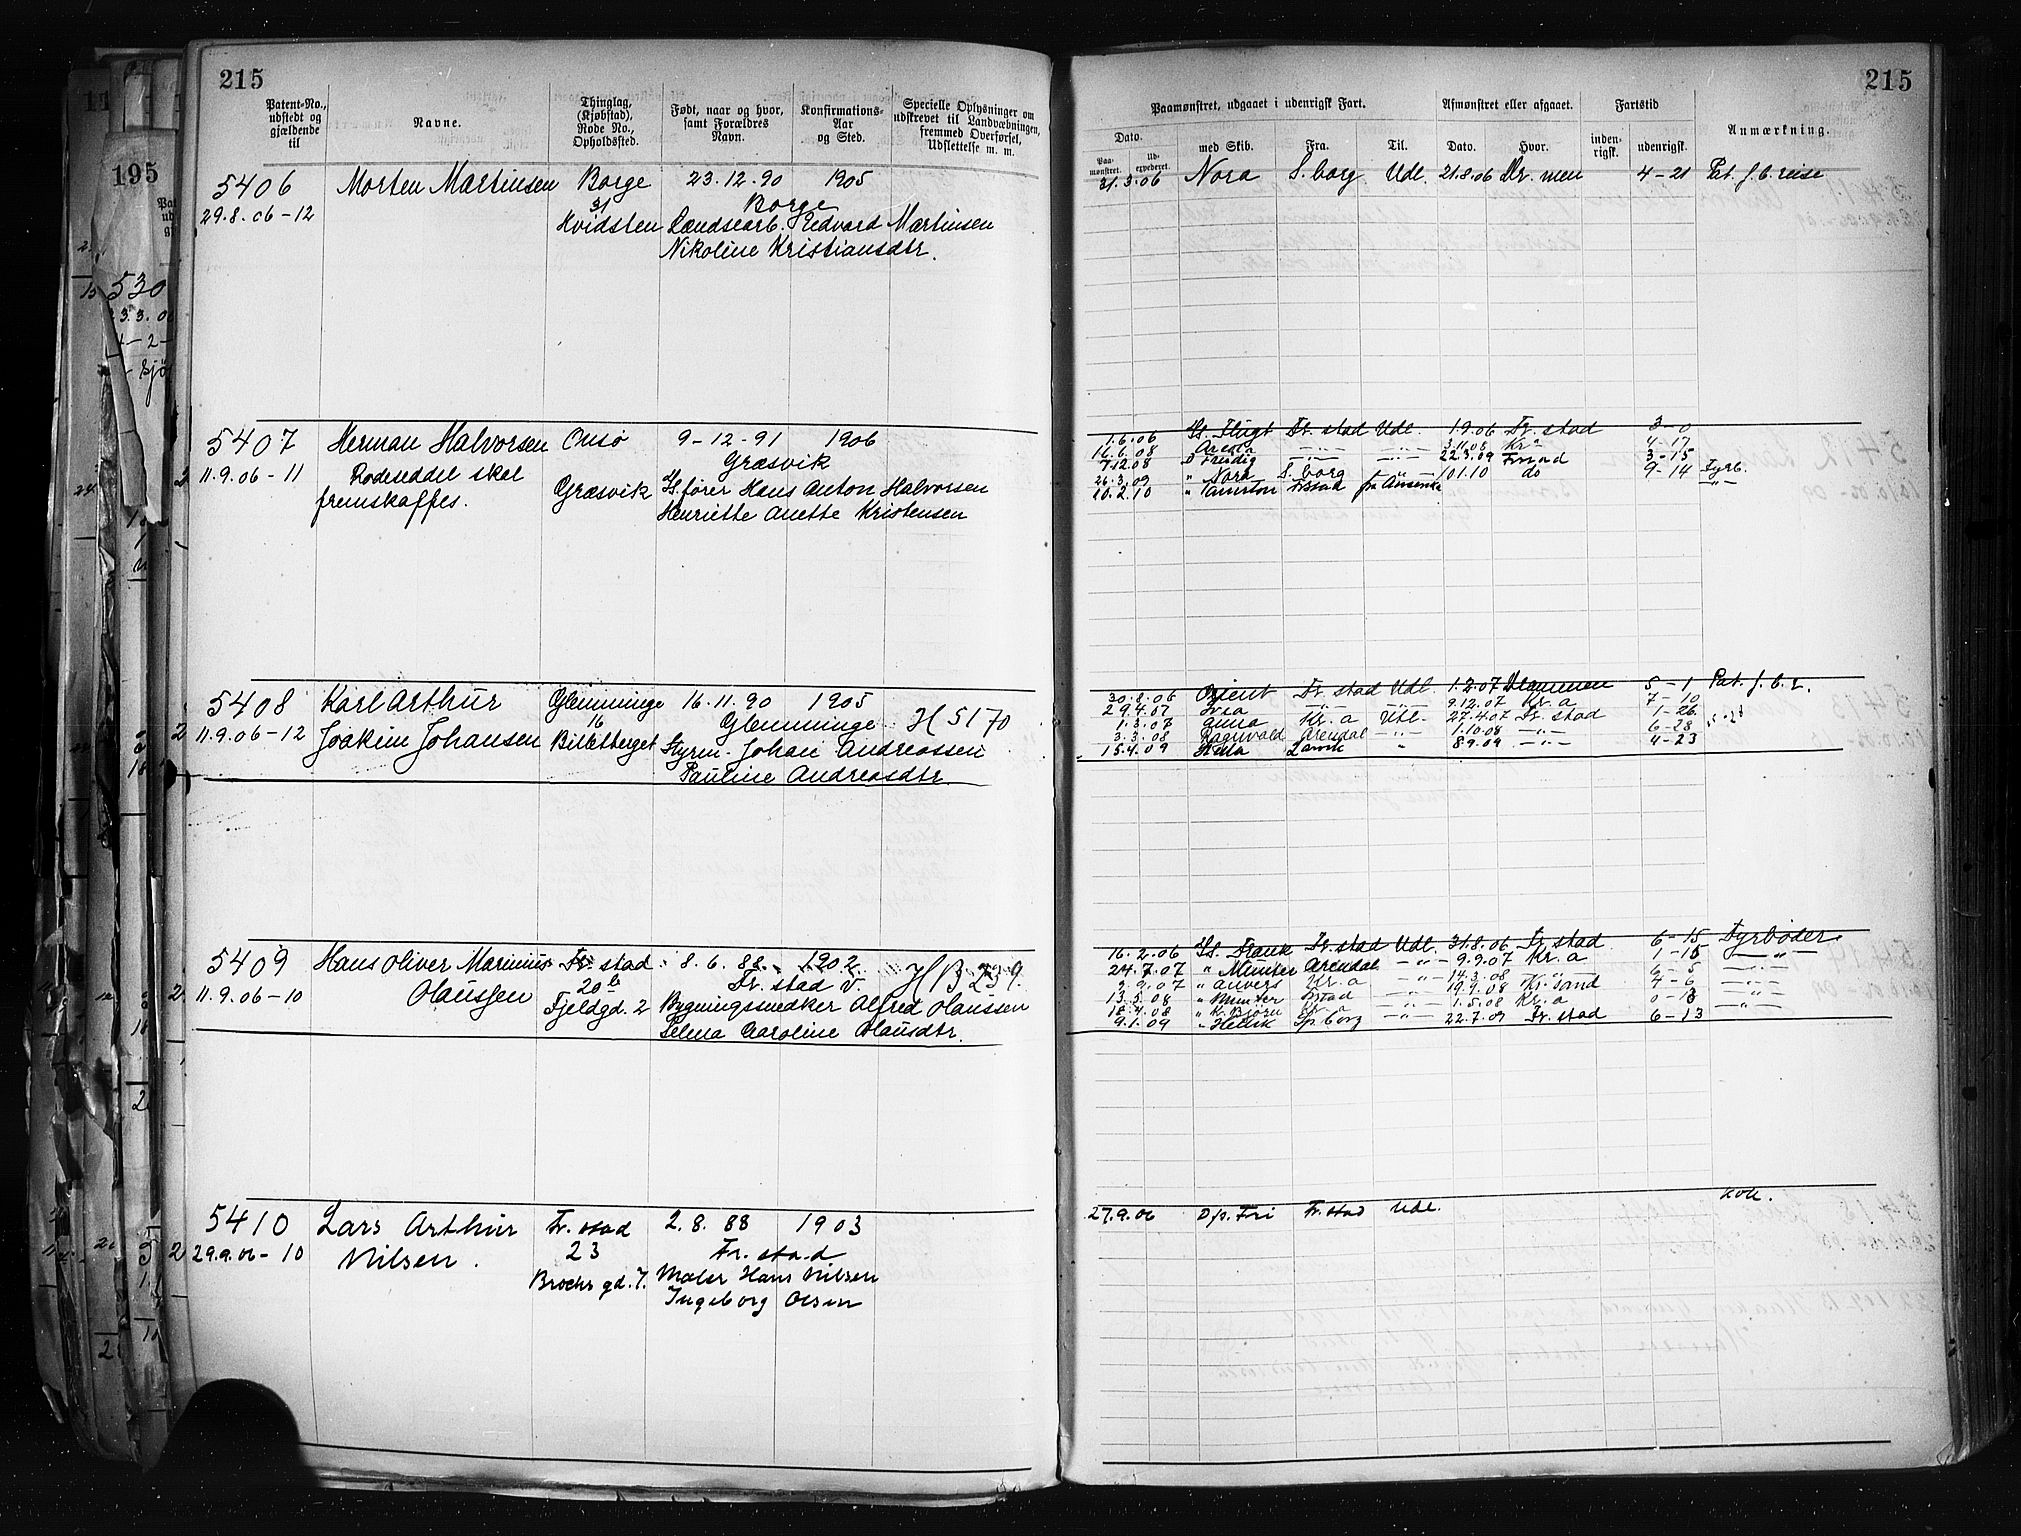 215
Patent-No., udstedt og gjældende til
Navne.
Thinglag, (Kjøbstad), Rode No., Opholdssted.
Født, naar og hvor, samt Forældres Navn.
Konfirmations-Aar og Sted.
Specielle Oplysninger om udskrevet til Landværnet, fremmed Overførsel, Udslettelse m. m.
5406 Morten Martinsen Borge 23.12.90 1905
29.8.06-12 31 Borge
Kvidsten Landsearb. Edvard Martinsen
Nikoline Kristiansdtr.
5407 Herman Halvorsen Onsø 9-12-91 1906
11.9.06-11 Rodeseddel skal Græsvik
fremskaffes. Græsvik Ss. fører Hans Anton Halvorsen
Henriette Anette Kristensen
5408 Karl Arthur Glemminge 16.11.90 1905
11.9.06-12 Joakim Johansen 16 Glemminge H 5170
Styrm. Johan Andreassen
Pauline Andreasdtr.
5409 Hans Oliver Marinius Fr. stad 8.6.88 1902
11.9.06-10 Olaussen 20b Fr. stad v. H B 239.
Fjeldgd. 2 Bygningssnedker Alfred Olaussen
Selma Caroline Olausdtr.
5410 Lars Arthur Fr. stad 2.8.88 1903
29.9.06-10 Nilsen. 23 Fr. stad
Brochs gd. 7. Maler Hans Nilsen
Ingeborg Olsen
215
Paamønstret, udgaaet i udenrigsk Fart.
Afmønstret eller afgaaet.
Fartstid
Anmærkning.
Dato.
Paa-mønstret. Ud-expederet. med Skib. Fra. Til. Dato. Hvor. inden-rigsk. udenrigsk.
21.3.06 Nora S. borg Udl. 21.8.06 Dr. men 4-21 Pat. f. b. reise
1.6.06 Ss. Flugt Fr. stad Udl. 1.9.06 Fr. stad 3-0
16.6.08 -"- -"- 3.11.08 Kr.a 4-17
7.12.08 D Freidig -"- -"- 22.3.09 3-15
26.3.09 " Nora S. borg 10.1.10 do 9-14 Fyrb.
20.2.10 -"-
30.8.06 Orient Fr. stad Udl. 1.2.07 Drammen 5-1 Pat. f. b. r.
29.4.07 -"- 9.12.07 Kr. a 7-10
1.3.07 Kr. a Udl. 27.4.07 Fr. stad 1-26
3.3.08 Ragnvald Arendal -"- 1.10.08 -"- 6-28
15.4.09 Larvik " 8.9.09 -"- 4-23
16.2.06 Ss. Frank Fr. stad Udl. 31.8.06 Fr. stad 6-15 Fyrbøder
24.7.07 " Munter Arendal -"- 9.9.07 Kr. a 1-15 -"-
2.9.07 " Anvers Kr. a " 14.3.08 6-5 -"-
13.5.08 " Munter -"- 19.9.08 Kr. sand 4-6 -"-
18.4.08 " K. Bjørn -"- 1.5.08 Kr. a 0-13 -"-
9.1.09 Sp. borg -"- 22.7.09 Fr. stad 6-13
27.9.06 Fri Fr. stad Udl. kok.
195
530